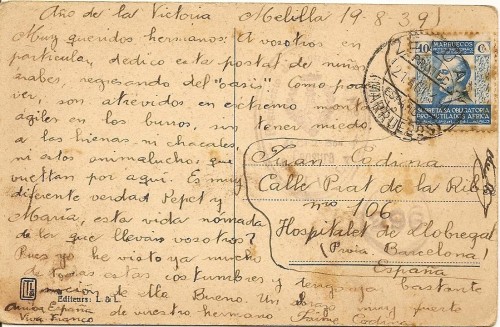 Año de la Victoria Melilla 19-8-39
Muy queridos hermanos: A vosotros en
particular, dedico este postal de niños
árabes, regresando del "oasis". Como podeis
ver, son atrevidos en extremo montan
ágiles en los burros, sin tener miedo,
a las hienas, ni chacales,
ni estos animaluchos, que
vueltan por aquí. Es muy
diferente verdad Pepet y
Maria, esta vida nomada
de la que lleváis vosotros?
Pues yo he visto ya mucho
de todas estas costumbres y tengo ya bastante
de ella. Bueno. Un abrazo muy fuerte
de vuestro hermano Jaime
Arriba España
Viva Franco
Juan Caduna
Calle Prat de la Riba
nro 106
Hospitalet de Llobregat
(Provia. Barcelona)
España
MARRUECOS
10 Cs
SOBRETASA OBLIGATORIA
PRO-MUTILADOS AFRICA
MARRUECOS
Editeurs: L & L.